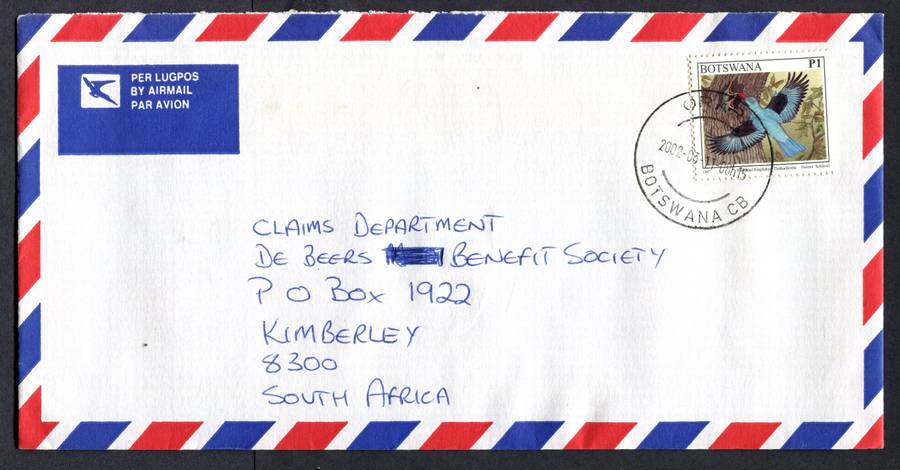 PER LUGPOS
BY AIRMAIL
PAR AVION
BOTSWANA P1
1997 Woodland Kingfisher Helena
BOTSWANA CB
CLAIMS DEPARTMENT
DE BEERS BENEFIT SOCIETY
P O BOX 1922
KIMBERLEY
8300
SOUTH AFRICA